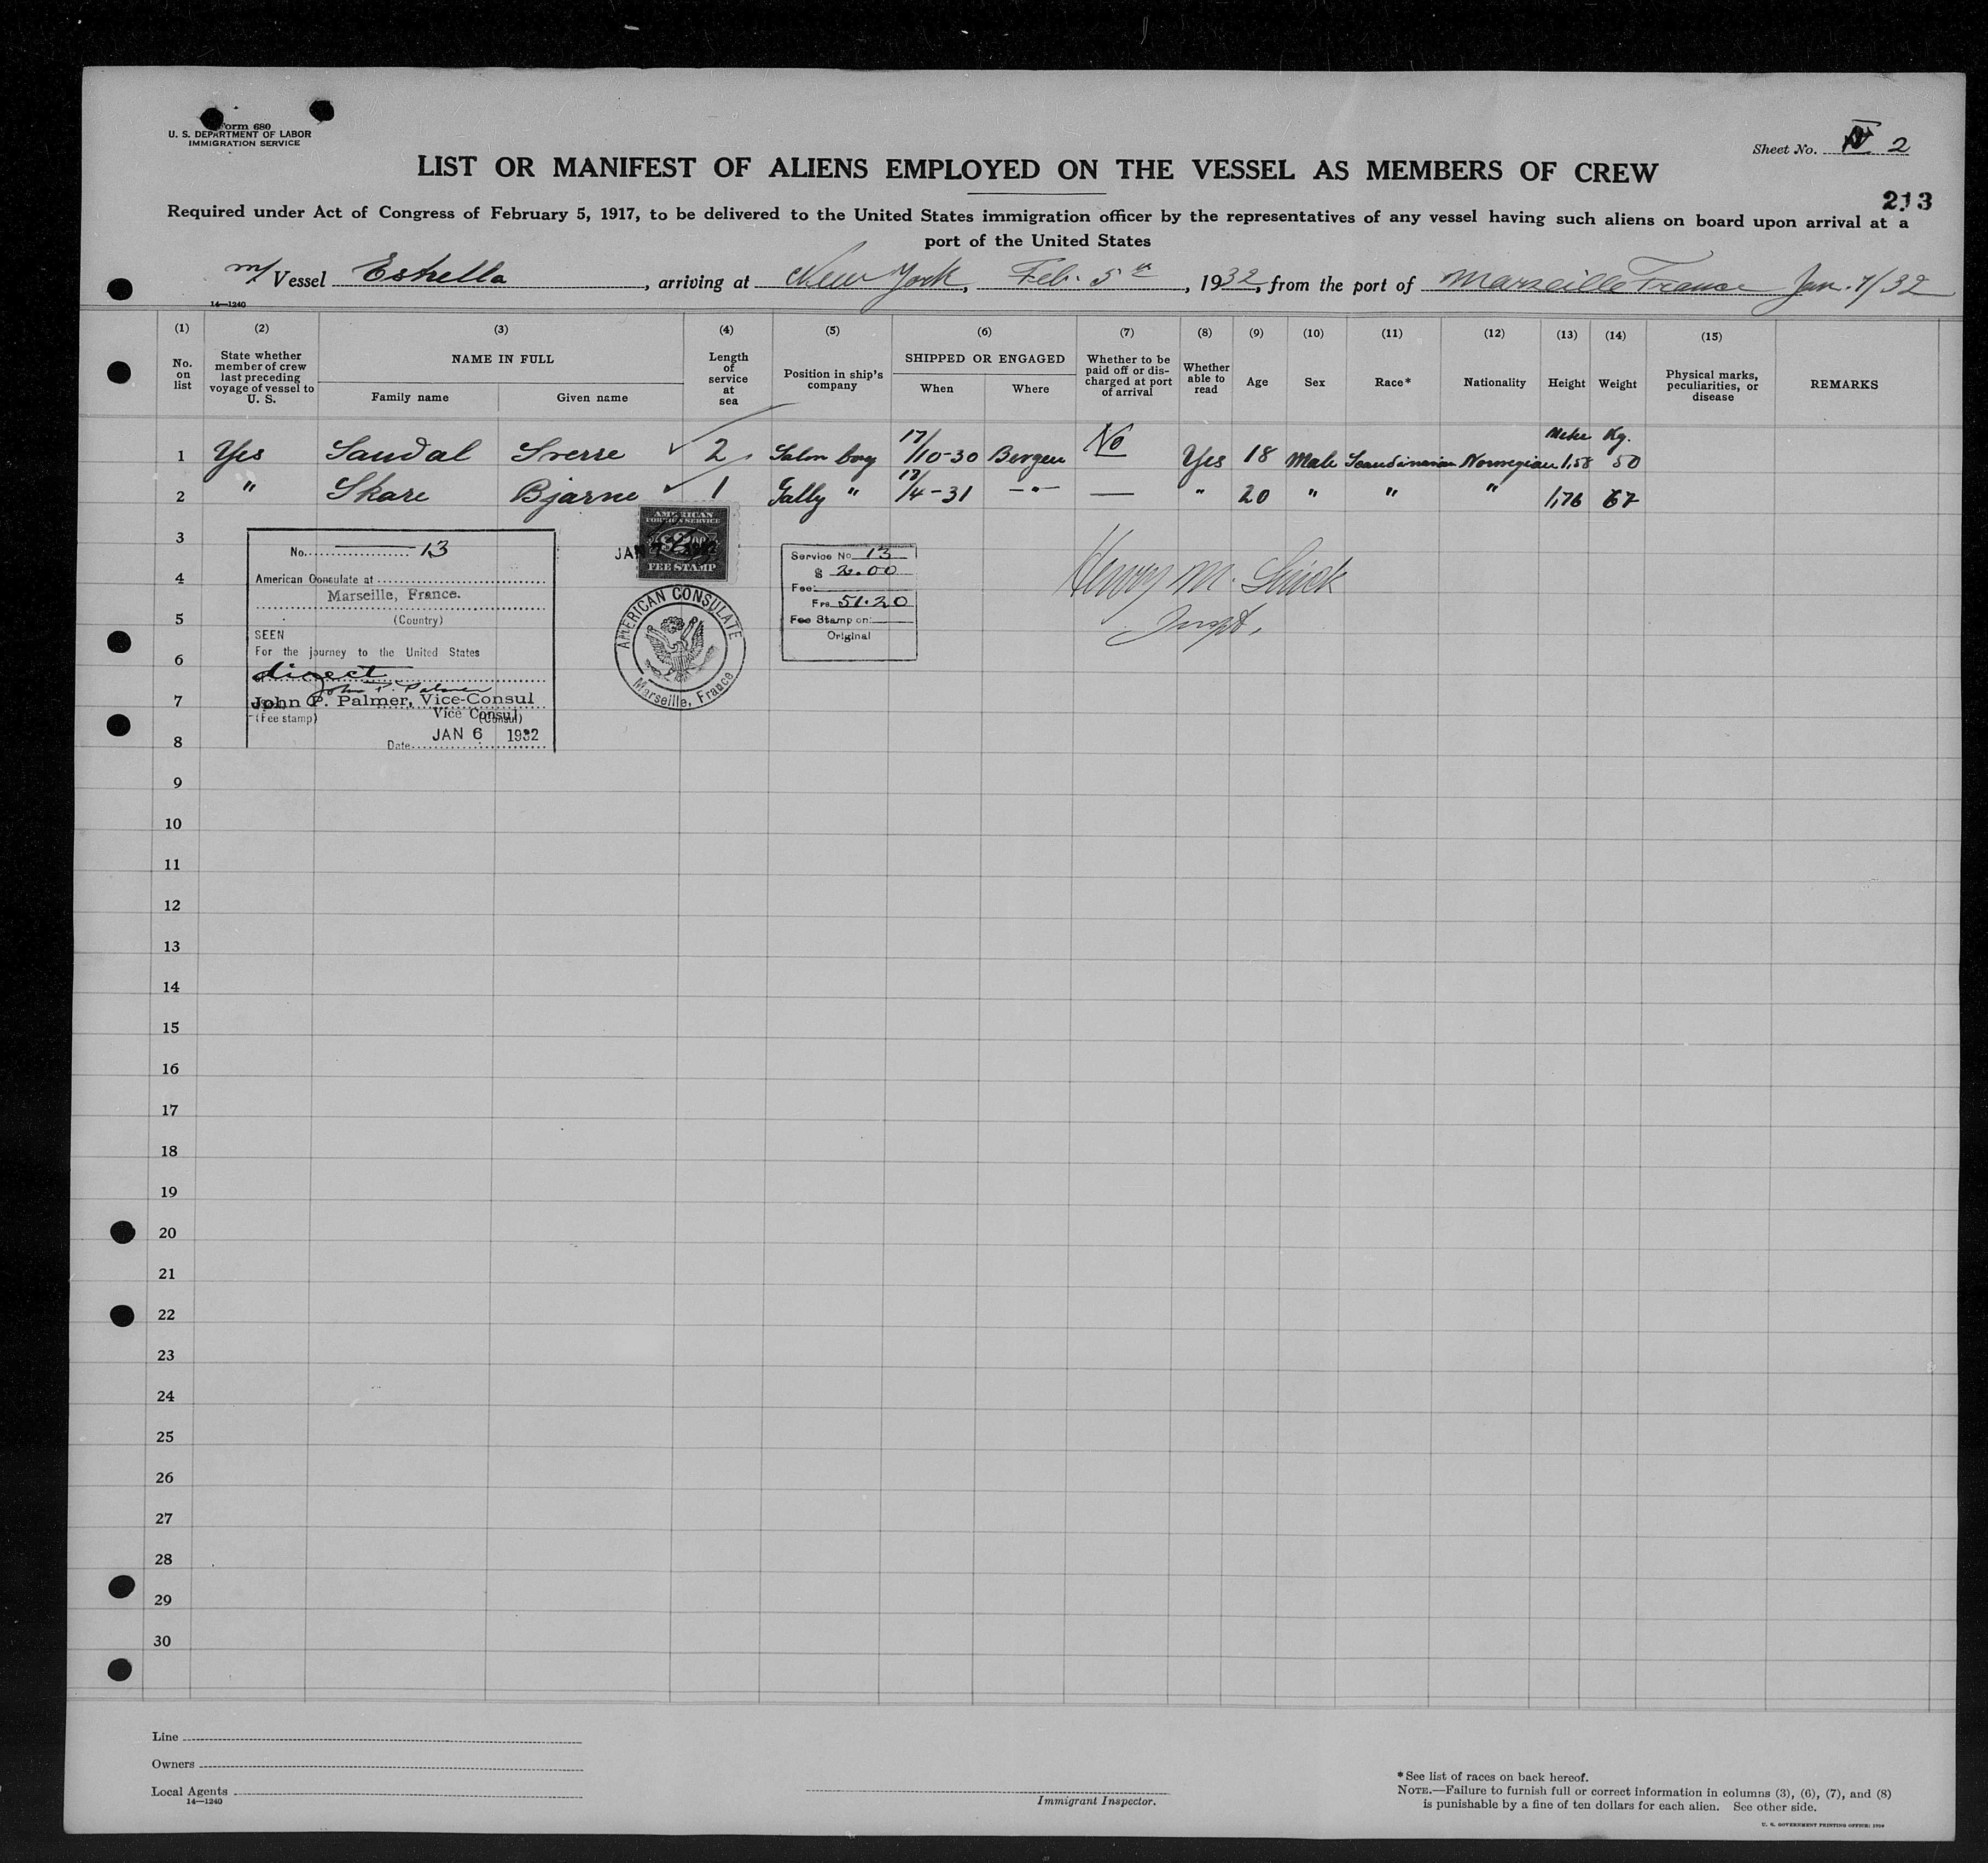 Form 680
U. S. DEPARTMENT OF LABOR
IMMIGRATION SERVICE
Sheet No. 2
LIST OR MANIFEST OF ALIENS EMPLOYED ON THE VESSEL AS MEMBERS OF CREW
213
Required under Act of Congress of February 5, 1917, to be delivered to the United States immigration officer by the representatives of any vessel having such aliens on board upon arrival at a
port of the United States
m/ Vessel Estrella, arriving at New York, Feb. 5th, 1932, from the port of Marseille France Jan. 7/32
14—1240
(1) (2) (3) (4) (5) (6) (7) (8) (9) (10) (11) (12) (13) (14) (15)
No. on list
State whether member of crew last preceding voyage of vessel to U. S.
NAME IN FULL
Family name
Given name
Length of service at sea
Position in ship's company
SHIPPED OR ENGAGED
When
Where
Whether to be paid off or discharged at port of arrival
Whether able to read
Age
Sex
Race*
Nationality
Height
Weight
Physical marks, peculiarities, or disease
REMARKS
Kg.
1 Yes Sandal Sverre 2 Salon boy 17/10-30 Bergen No Yes 18 Male Scandinavian Norwegian 1,58 50
2 " Skare Bjarne 1 Gally " 17/4-31 -"- — " 20 " " " 1,76 67
3
4
5
6
7
8
9
10
11
12
13
14
15
16
17
18
19
20
21
22
23
24
25
26
27
28
29
30
No. 13
American Consulate at
Marseille, France.
(Country)
SEEN
For the journey to the United States
direct
John P. Palmer
John P. Palmer, Vice-Consul
Vice Consul
(Fee stamp) (Consul)
Date JAN 6 1932
AMERICAN
FOREIGN SERVICE
FEE STAMP
AMERICAN CONSULATE
Marseille, France
Service No. 13
$ 2.00
Fee:
Frs 51.20
Fee Stamp on:
Original
Henry M.
Inspt.
Line
Owners
Local Agents
14—1240
Immigrant Inspector.
*See list of races on back hereof.
NOTE.—Failure to furnish full or correct information in columns (3), (6), (7), and (8)
is punishable by a fine of ten dollars for each alien. See other side.